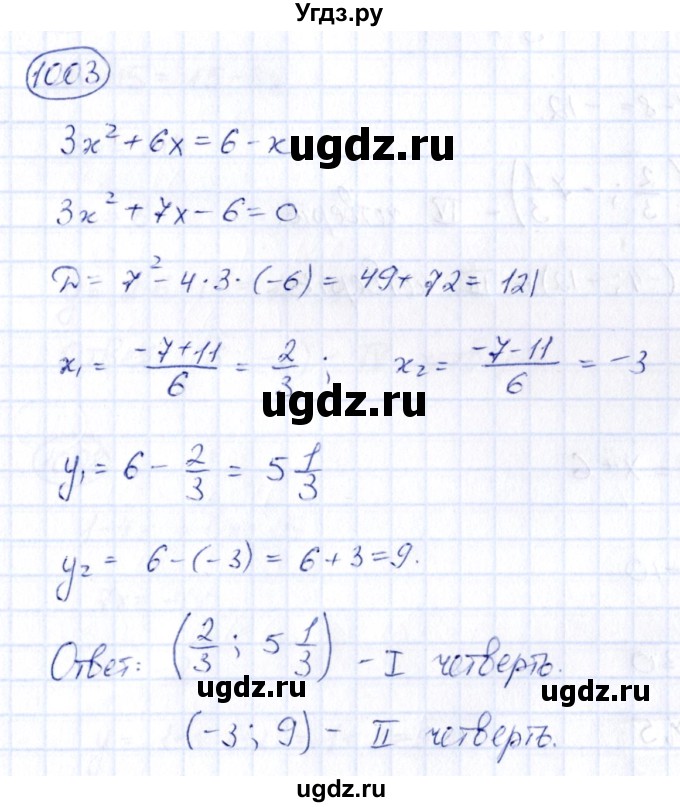 Угдз.ру
1003
3x² + 6x = 6 - x
ugdz.ru
3x² + 7x - 6 = 0
D = 7² - 4·3·(-6) = 49 + 72 = 121
x₁ = (-7+11)/6 = 2/3 ; x₂ = (-7-11)/6 = -3
ugdz.ru
y₁ = 6 - 2/3 = 5 1/3
y₂ = 6-(-3) = 6 + 3 = 9.
Ответ: (2/3 ; 5 1/3) - I четверть.
ugdz.ru ugdz.ru
(-3; 9) - II четверть.
ugdz.ru